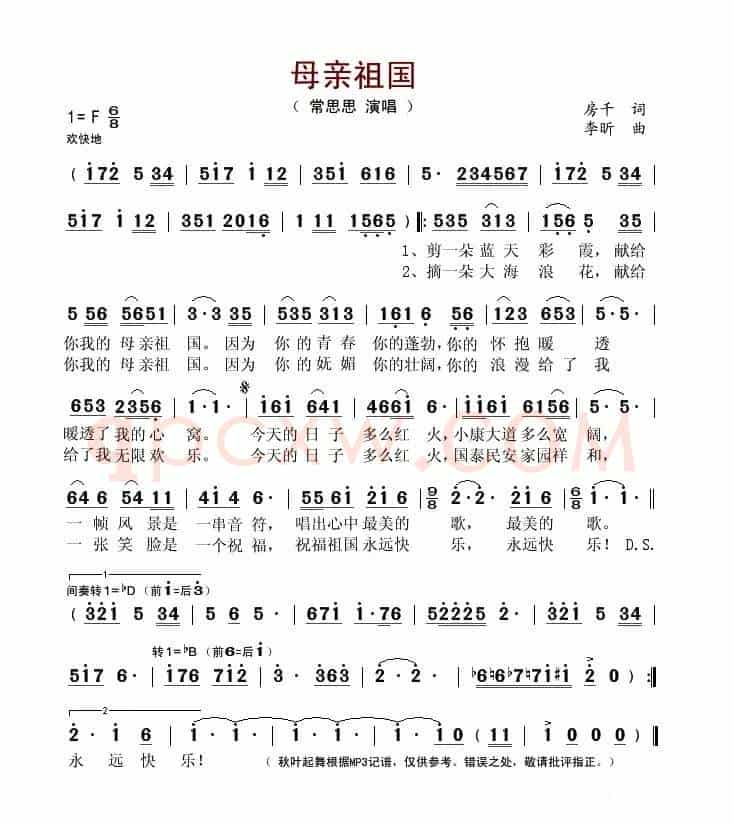 母亲祖国
（ 常思思 演唱 ）
1=F 6/8
欢快地
房千 词
李昕 曲
( 172 5 34 | 517 1 12 | 351 616 | 5· 234567 | 172 5 34 |
517 1 12 | 351 2016 | 1 11 1565 ) |: 535 313 | 156 5 35 |
1、剪一朵 蓝 天 彩 霞, 献给
2、摘一朵 大 海 浪 花, 献给
5 56 5651 | 3·3 35 | 535 313 | 161 6 56 | 123 653 | 5·5· |
你我的 母亲祖 国。因为 你 的 青 春 你的蓬勃, 你的 怀 抱 暖 透
你我的 母亲祖 国。因为 你 的 妩 媚 你的壮阔, 你的 浪 漫 给 了 我
653 2356 | 1·1· | 161 641 | 4661 6· | 1612 6156 | 5·5· |
暖透了 我的心 窝。 今天的 日 子 多么红 火, 小康大道 多么宽 阔,
给了我 无限欢 乐。 今天的 日 子 多么红 火, 国泰民安 家园祥 和,
qpcxw.com
64 6 54 11 | 41 1 6· | 55 61 21 6 | 9/8 2·2· 21 6 | 6/8 1·1· ||
一 帧 风 景是 一串音 符, 唱出心中 最美的 歌, 最美的 歌。
一 张 笑 脸是 一个祝 福, 祝福祖国 永远快 乐, 永远快 乐! D.S.
1
间奏转1=♭D（前1=后3）
( 321 5 34 | 5 6 5 | 671 1·76 | 52225 2· | 321 5 34 |
转1=♭B（前6=后1）
517 6· | 176 712 | 3· 363 | 2·2· | ♭6♮6♭7♮71♯1 2 0 0 ) :||
2
2· 1 6 | 1·1· | 1·1· | 1·1· | 1 0 0 ( 11 | 1 0 0 ) ||
永 远 快 乐!
（ 秋叶起舞根据MP3记谱, 仅供参考。错误之处, 敬请批评指正。）